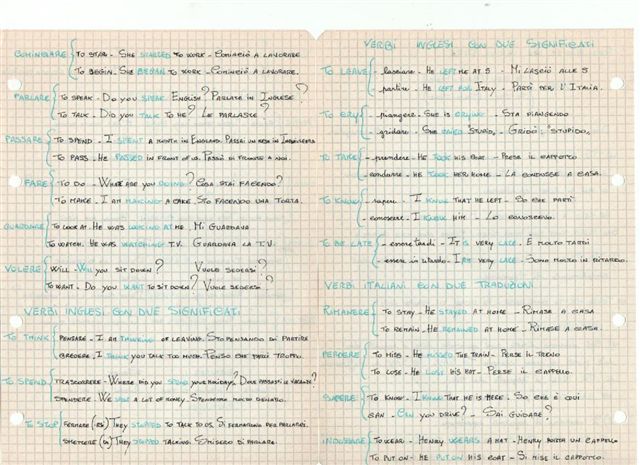 COMINCIARE
TO START - SHE STARTED TO WORK - COMINCIÒ A LAVORARE
TO BEGIN. SHE BEGAN TO WORK - COMINCIÒ A LAVORARE.
PARLARE
TO SPEAK - DO YOU SPEAK ENGLISH? PARLATE IN INGLESE?
TO TALK - DID YOU TALK TO HE? LE PARLASTE?
PASSARE
TO SPEND - I SPENT A MONTH IN ENGLAND. PASSAI UN MESE IN INGHILTERRA
TO PASS - HE PASSED IN FRONT OF US. PASSÒ DI FRONTE A NOI.
FARE
TO DO - WHAT ARE YOU DOING? COSA STAI FACENDO?
TO MAKE - I AM MAKING A CAKE. STO FACENDO UNA TORTA.
GUARDARE
TO LOOK AT. HE WAS LOOKING AT ME. MI GUARDAVA
TO WATCH. HE WAS WATCHING T.V. GUARDAVA LA T.V.
VOLERE
WILL - WILL YOU SIT DOWN? VUOLE SEDERSI?
TO WANT - DO YOU WANT TO SIT DOWN? VUOLE SEDERSI?
VERBI INGLESI CON DUE SIGNIFICATI
TO THINK
PENSARE - I AM THINKING OF LEAVING. STO PENSANDO DI PARTIRE
CREDERE - I THINK YOU TALK TOO MUCH. PENSO CHE PARLI TROPPO.
TO SPEND
TRASCORRERE - WHERE DID YOU SPEND YOUR HOLIDAYS? DOVE PASSASTI LE VACANZE?
SPENDERE - WE SPENT A LOT OF MONEY. SPENDEMMO MOLTO DENARO.
TO STOP
FERMARE THEY STOPPED TO TALK TO US. SI FERMARONO PER PARLARCI.
SMETTERE THEY STOPPED TALKING. SMISERO DI PARLARE.
VERBI INGLESI CON DUE SIGNIFICATI
TO LEAVE
- lasciare - HE LEFT ME AT 5 - MI LASCIÒ ALLE 5
- partire - HE LEFT FOR ITALY - PARTÌ PER L'ITALIA.
TO CRY
- piangere - SHE IS CRYING - STA PIANGENDO
- gridare - SHE CRIED "STUPID" - GRIDÒ: "STUPIDO"
TO TAKE
- prendere - HE TOOK HIS COAT - PRESE IL CAPPOTTO
- condurre - HE TOOK HER HOME - LA CONDUSSE A CASA.
TO KNOW
- sapere - I KNOW THAT HE LEFT - SO CHE PARTÌ
- conoscere - I KNOW HIM - LO CONOSCEVO.
TO BE LATE
- essere tardi - IT IS VERY LATE. È MOLTO TARDI
- essere in ritardo - I AM VERY LATE. SONO MOLTO IN RITARDO.
VERBI ITALIANI CON DUE TRADUZIONI
RIMANERE
TO STAY - HE STAYED AT HOME - RIMASE A CASA
TO REMAIN - HE REMAINED AT HOME - RIMASE A CASA.
PERDERE
TO MISS - HE MISSED THE TRAIN - PERSE IL TRENO
TO LOSE - HE LOST HIS HAT - PERSE IL CAPPELLO.
SAPERE
TO KNOW - I KNOW THAT HE IS HERE - SO CHE È QUI
CAN - CAN YOU DRIVE? - SAI GUIDARE?
INDOSSARE
TO WEAR - HENRY WEARS A HAT - HENRY PORTA UN CAPPELLO
TO PUT ON - HE PUT ON HIS COAT - SI MISE IL CAPPOTTO.